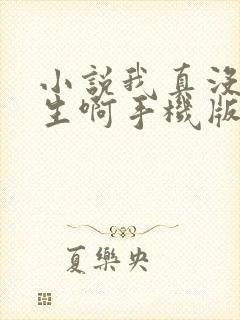 小說我真沒
生啊手機版
夏樂央